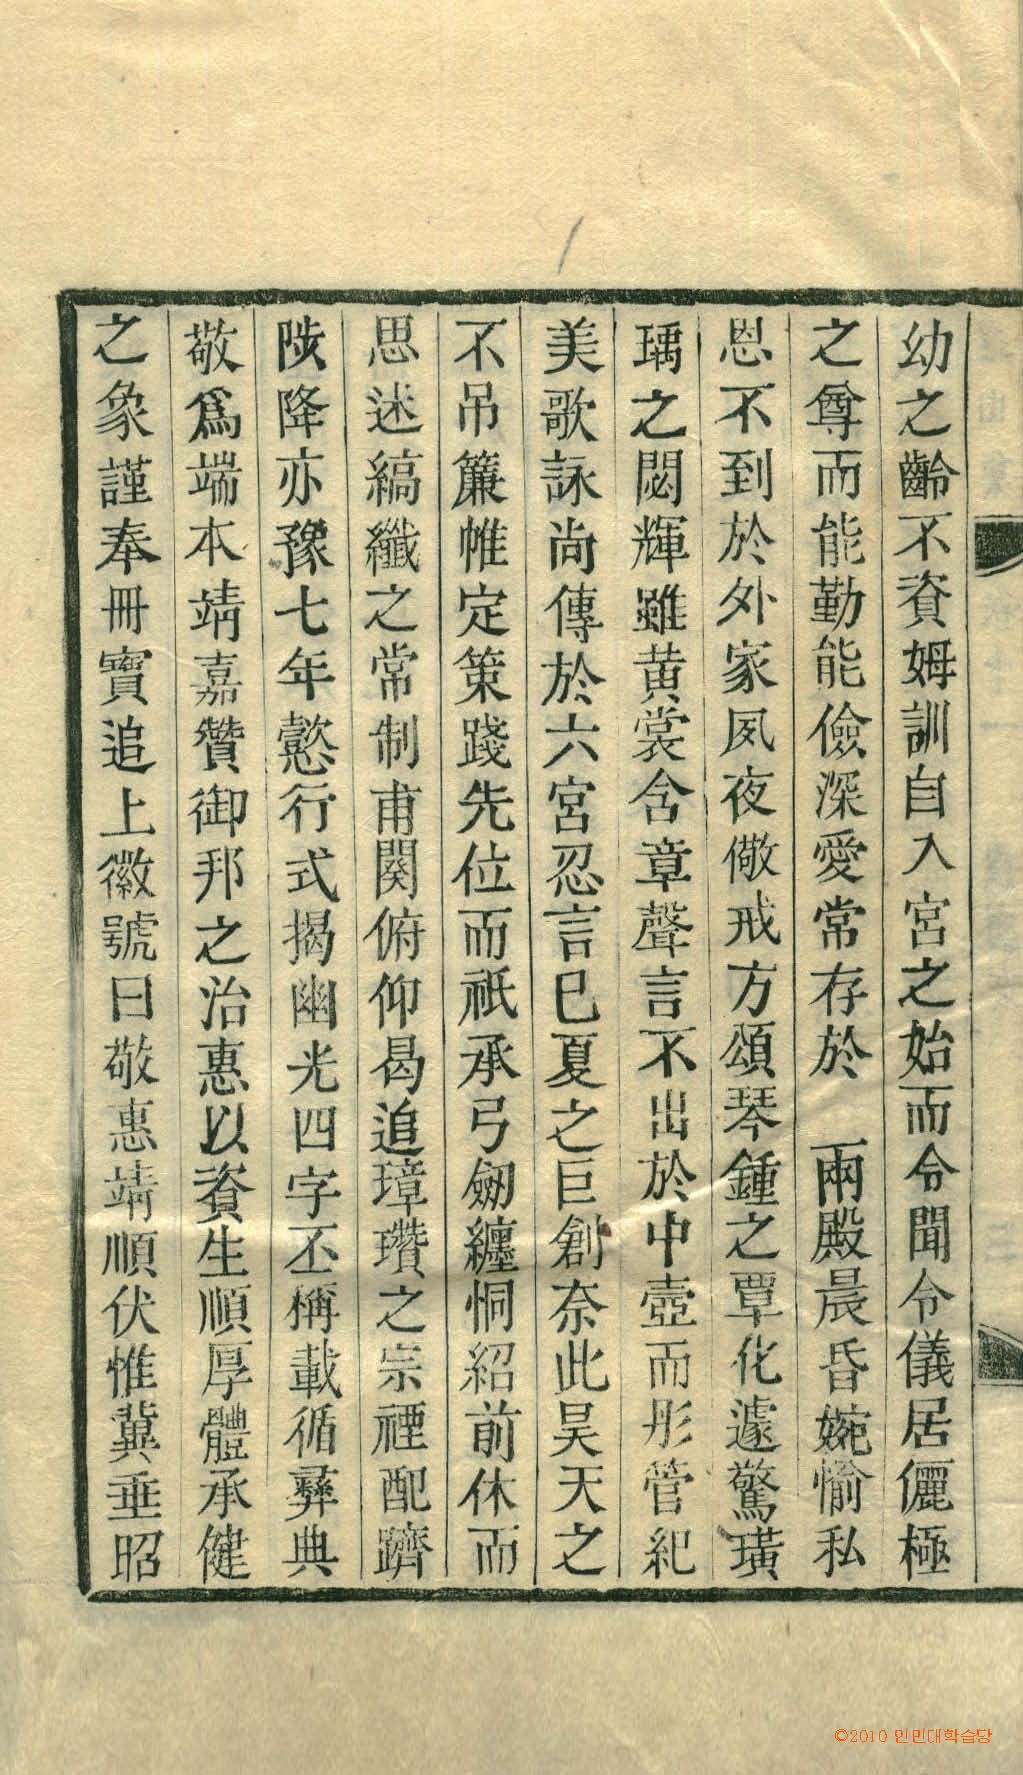 幼之齡不資姆訓自入宮之始而令聞令儀居儷極
之尊而能勤能儉深愛常存於 兩殿晨昏婉愉私
恩不到於外家夙夜儆戒方頌琴鍾之覃化遽驚璜
瑀之閟輝雖黃裳含章聲言不出於中壼而彤管紀
美歌詠尚傳於六宮忍言巳夏之巨創奈此昊天之
不吊簾帷定策踐先位而祇承弓劒纏恫紹前休而
思述縞纖之常制甫闋俯仰曷追璋瓚之宗禋配躋
陟降亦豫七年懿行式揭幽光四字丕稱載循彝典
敬爲端本靖嘉贊御邦之治惠以資生順厚體承健
之象謹奉冊寶追上徽號曰敬惠靖順伏惟冀垂昭
©2010 인민대학습당